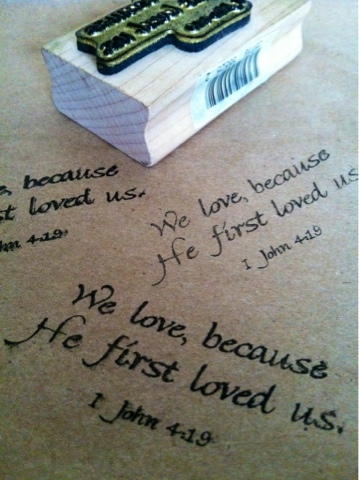 , because
st loved us.
hn 4:19
We love, because
He first loved us
I John 4:19
We love, because
He first loved us.
I John 4:19